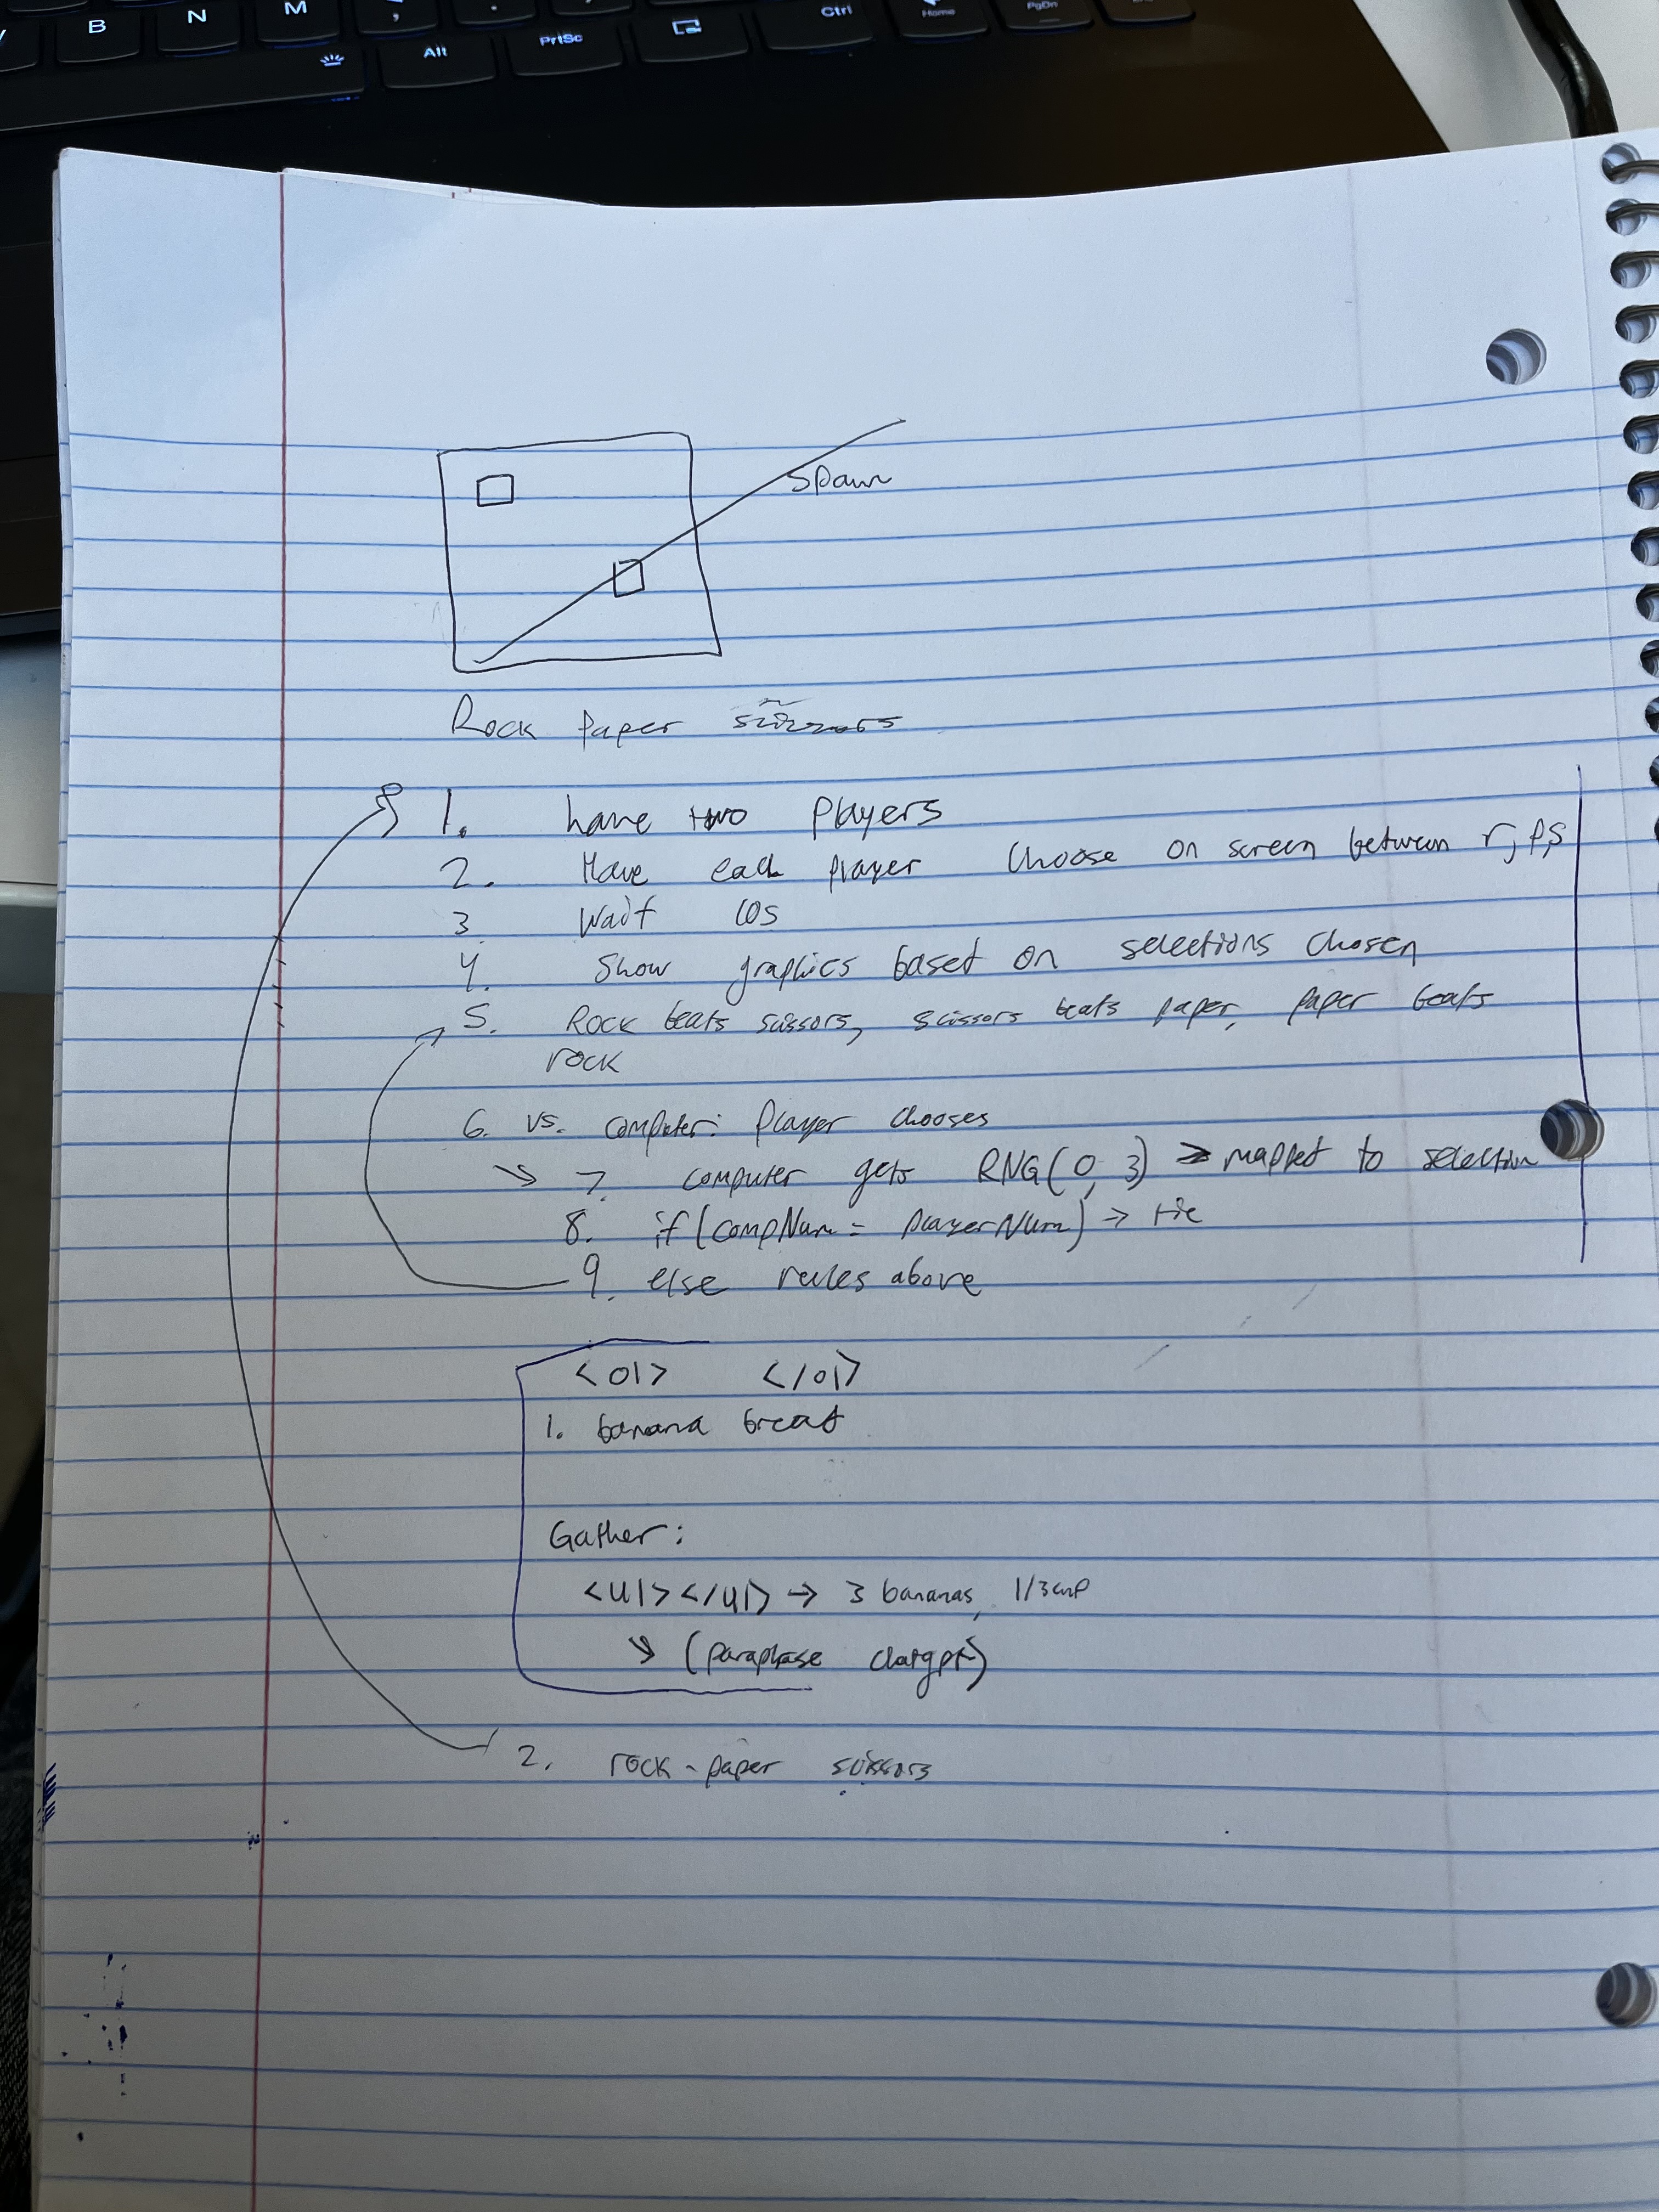 B N M
Alt PrtSc Ctrl Home PgDn
Spawn
Rock Paper
1. have two players
2. Have each player choose on screen between r, p, s
3. Wait 10s
4. Show graphics based on selections chosen
5. Rock beats scissors, scissors beats paper, paper beats
rock
6. vs. computer: player chooses
↘ 7. computer gets RNG(0, 3) → mapped to selection
8. if (compNum = playerNum) → tie
9. else rules above
<ol> </ol>
1. banana bread
Gather:
<ul></ul> → 3 bananas, 1/3 cup
↘ (paraphase chatgpt)
2. rock-paper scissors